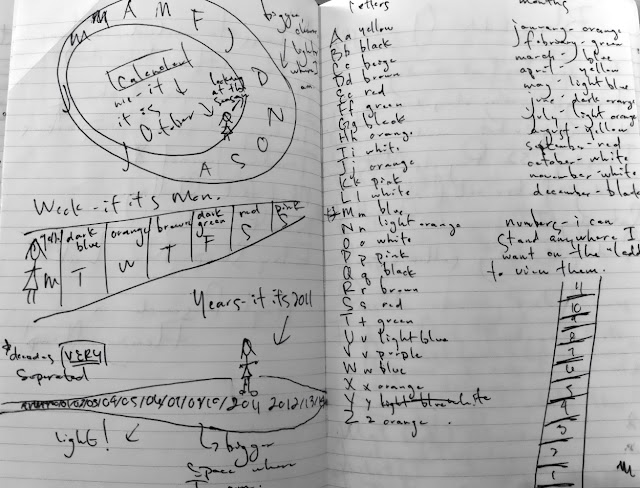 M M A M F J
J D
N
O
S
A
J
Calendar
it is
October
looking
at the
bigger
when
lighter
Week - if it's Mon.
M
dark
blue
T
orange
W
brown
T
dark
green
F
red
S
pink
S
Years - if it's 2011
*decades VERY
separated
2011 2012/13/
light!
bigger
space where
letters
Aa yellow
Bb black
Cc beige
Dd brown
Ee red
Ff green
Gg black
Hh orange
Ii white
Jj orange
Kk pink
Ll white
Mm blue
Nn light orange
Oo white
Pp pink
Qq black
Rr brown
Ss red
Tt green
Uu light blue
Vv purple
Ww blue
Xx orange
Yy light blue white
Zz orange.
months
january - orange
february - green
march - blue
april - yellow
may - light blue
june - dark orange
july - light orange
august - yellow
september - red
october - white
november - white
december - black
numbers - i can
stand anywhere I
want on the ladd
to view them.
11
10
9
8
7
6
5
4
3
2
1